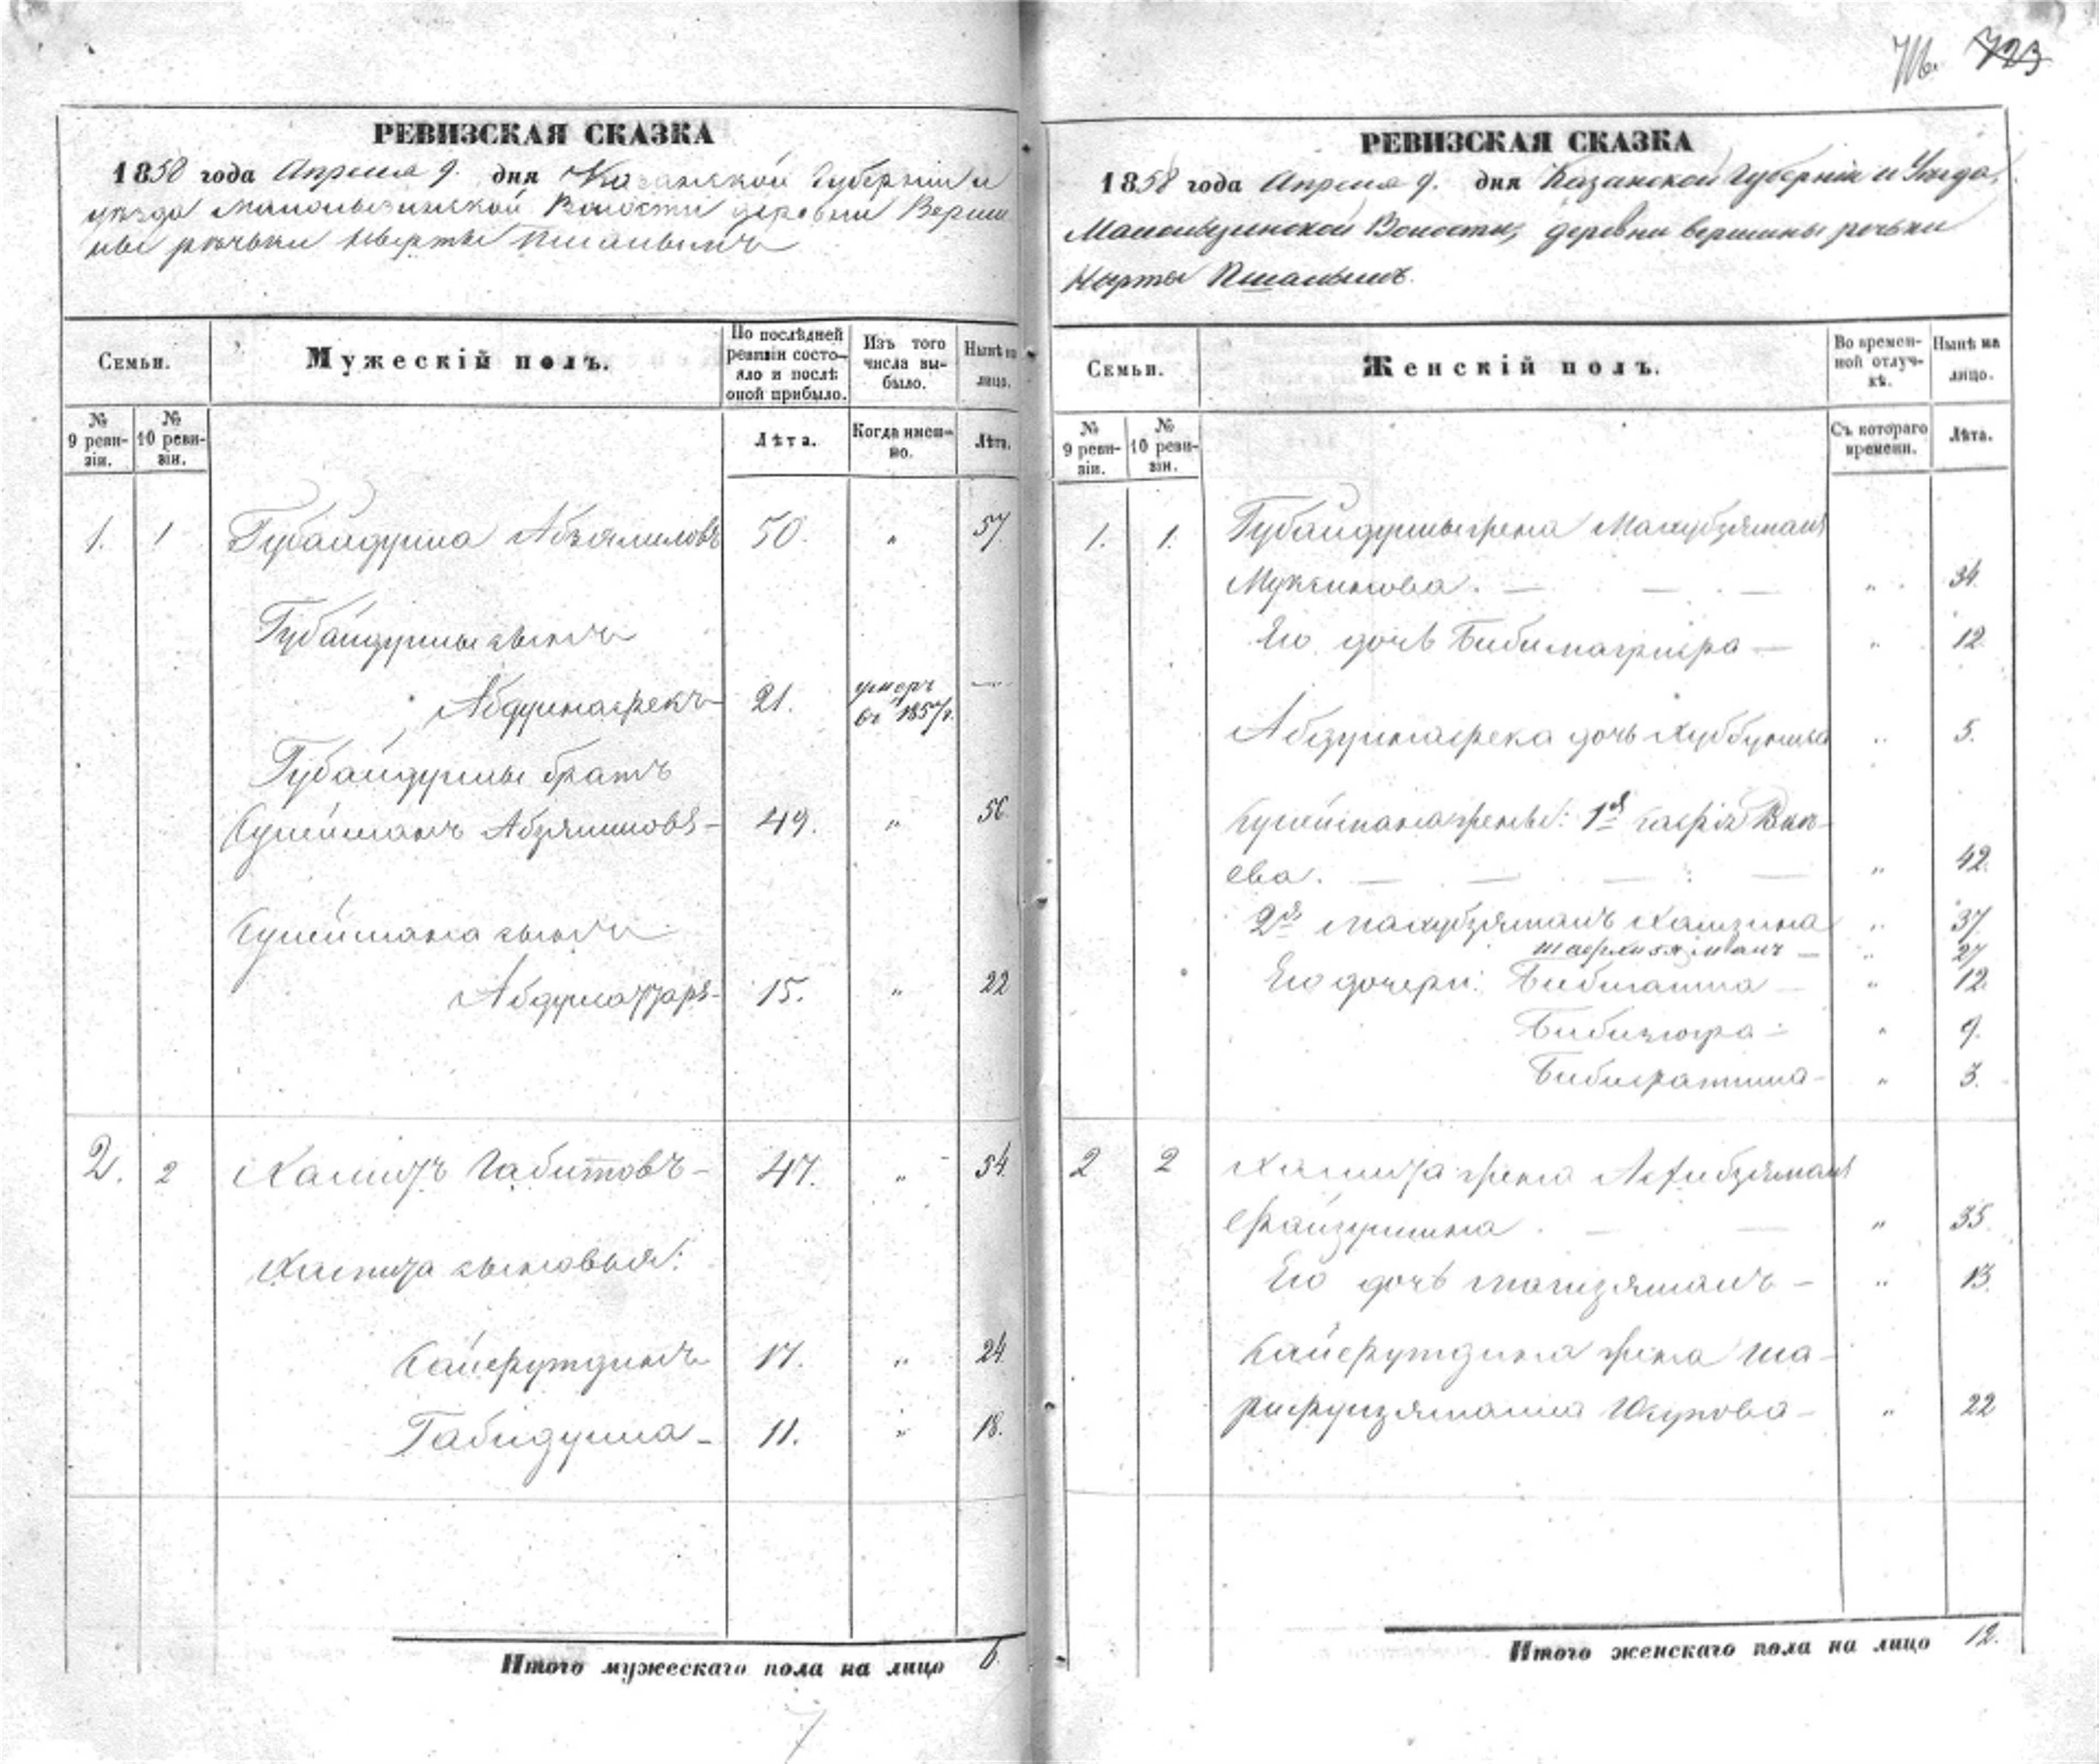 716. 723
РЕВИЗСКАЯ СКАЗКА
1858 года Апреля 9. дня Казанской Губерніи и
уѣзда Волости деревни Верши
ны рѣчьки Кырты
Семьи.
Мужескій полъ.
По послѣдней ревизіи состояло и послѣ оной прибыло.
Изъ того числа выбыло.
Нынѣ на лицо.
№ 9 ревизіи.
№ 10 ревизіи.
Лѣта.
Когда именно.
Лѣта.
1. 1 Губайдулла Абзялиловъ 50. „ 57
Губайдуллы сынъ
Абдулнафекъ 21. умеръ въ 1857/г. —
Губайдуллы братъ
Сулейманъ Абзялиловъ - 49. „ 56
Сулеймана сынъ
Абдулгаффаръ - 15. „ 22
2. 2 Хамитъ Габитовъ - 47. „ 54.
Хамита сыновья:
Сайфутдинъ 17. „ 24
Габидулла - 11. „ 18.
Итого мужескаго пола на лицо 6.
РЕВИЗСКАЯ СКАЗКА
1858 года Апреля 9. дня Казанской Губерніи и Уѣзда,
Волости, деревни вершины речьки
Кырты
Семьи.
Женскій полъ.
Во временной отлучкѣ.
Нынѣ на лицо.
№ 9 ревизіи.
№ 10 ревизіи.
Съ котораго времени.
Лѣта.
1. 1. Губайдуллы жена Махубзямалъ
Муксинова. — — — „ 34.
Его дочь — „ 12
Абдулнафека дочь „ 5.
Сулеймана жены: 1я
ева. — — — — „ 42.
2я Махубзямалъ Хамзина „ 37
— „ 27
Его дочери: — „ 12.
„ 9.
Бибифатима - „ 3.
2 2 Хамита жена
Файзуллина. — — „ 35.
Его дочь — „ 13.
Сайфутдина жена Ша-
Юсупова - „ 22
Итого женскаго пола на лицо 12.